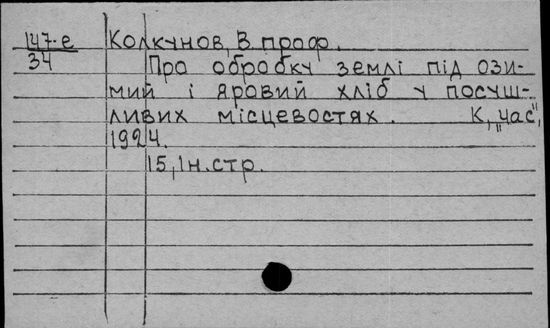 147-е Колкунов, В. проф.
34 Про обробку землі під ози-
мий і яровий хліб у посуш-
ливих місцевостях. К, "Час",
1924.
15, 1 н. стр.